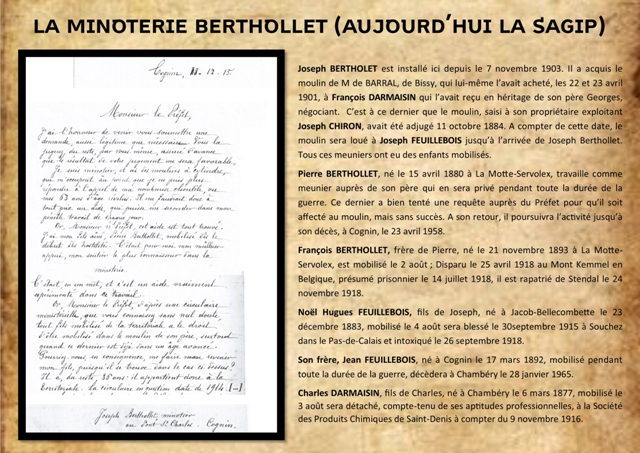 LA MINOTERIE BERTHOLLET (AUJOURD'HUI LA SAGIP)
Cognin, 11-12-15
Monsieur le Préfet,
J'ai l'honneur de venir vous soumettre une
demande, aussi légitime que nécessaire. Vous la
jugerez, du reste, par vous même, assuré d'avance
que le résultat de votre jugement me sera favorable.
Je suis minotier, et ai un moulin à cylindres,
répondre à l'appel de ma nombreuse clientèle, vu
mes 63 ans d'âge révolus. Il me faudrait donc à
tout prix un aide, qui puisse me seconder dans mon
pénible travail de chaque jour.
Or, Monsieur le Préfet, cet aide est tout trouvé.
J'ai mon fils aîné, Pierre Berthollet, mobilisé dès le
début des hostilités. C'était pour moi, mon meilleur
appui, mon soutien le plus connaisseur dans la
minoterie.
C'était, en un mot, et c'est un aide vraiment
expérimenté dans ce travail.
Or, Monsieur le Préfet, d'après une circulaire
ministérielle, que vous connaissez sans nul doute,
tout fils mobilisé de la territoriale a le droit
d'être mobilisé dans le moulin de son père, surtout
quand ce dernier est déjà dans un âge avancé.
Pourriez-vous en conséquence, me faire venir
mon fils, puisqu'il se trouve dans le cas ci-dessus?
Il a, du reste, 35 ans : il appartient donc à la
Territoriale. La circulaire en question date de 1914. [...]
Joseph Berthollet, minotier
au Pont St Charles. Cognin.
Joseph BERTHOLET est installé ici depuis le 7 novembre 1903. Il a acquis le
moulin de M de BARRAL, de Bissy, qui lui-même l'avait acheté, les 22 et 23 avril
1901, à François DARMAISIN qui l'avait reçu en héritage de son père Georges,
négociant. C'est à ce dernier que le moulin, saisi à son propriétaire exploitant
Joseph CHIRON, avait été adjugé 11 octobre 1884. A compter de cette date, le
moulin sera loué à Joseph FEUILLEBOIS jusqu'à l'arrivée de Joseph Berthollet.
Tous ces meuniers ont eu des enfants mobilisés.
Pierre BERTHOLLET, né le 15 avril 1880 à La Motte-Servolex, travaille comme
meunier auprès de son père qui en sera privé pendant toute la durée de la
guerre. Ce dernier a bien tenté une requête auprès du Préfet pour qu'il soit
affecté au moulin, mais sans succès. A son retour, il poursuivra l'activité jusqu'à
son décès, à Cognin, le 23 avril 1958.
François BERTHOLLET, frère de Pierre, né le 21 novembre 1893 à La Motte-
Servolex, est mobilisé le 2 août ; Disparu le 25 avril 1918 au Mont Kemmel en
Belgique, présumé prisonnier le 14 juillet 1918, il est rapatrié de Stendal le 24
novembre 1918.
Noël Hugues FEUILLEBOIS, fils de Joseph, né à Jacob-Bellecombette le 23
décembre 1883, mobilisé le 4 août sera blessé le 30septembre 1915 à Souchez
dans le Pas-de-Calais et intoxiqué le 26 septembre 1918.
Son frère, Jean FEUILLEBOIS, né à Cognin le 17 mars 1892, mobilisé pendant
toute la durée de la guerre, décèdera à Chambéry le 28 janvier 1965.
Charles DARMAISIN, fils de Charles, né à Chambéry le 6 mars 1877, mobilisé le
3 août sera détaché, compte-tenu de ses aptitudes professionnelles, à la Société
des Produits Chimiques de Saint-Denis à compter du 9 novembre 1916.